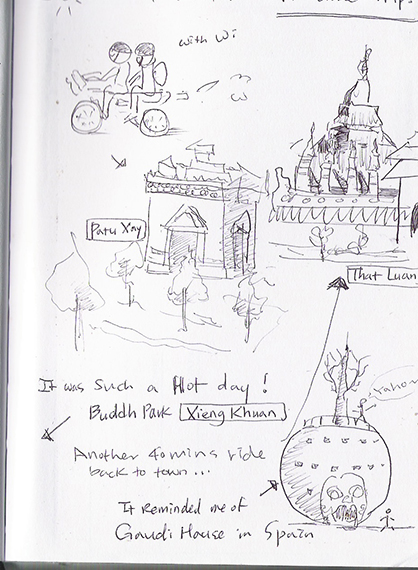 with Wi
Patu Xay
That Luan
It was Such a Hot day !
Buddh Park Xieng Khuan
Yahoo
Another 40 mins ride
back to town...
It Reminded me of
Gaudi House in Spain